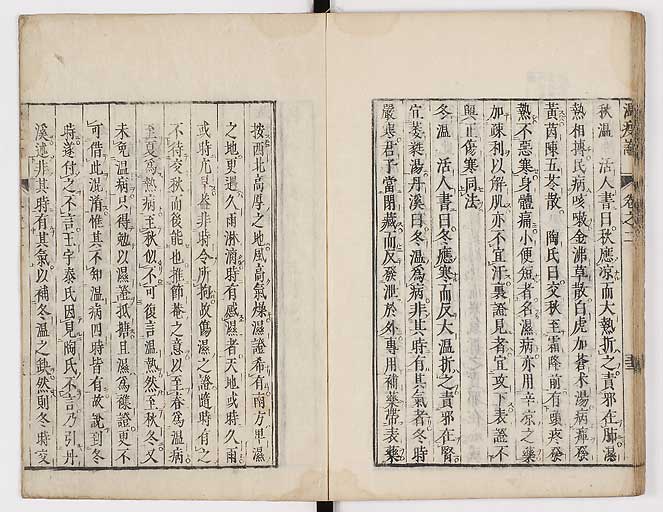 溫疫論 卷之二
秋溫 活人書曰秋應凉而大熱折之責邪在肺濕
熱相搏民病咳嗽金沸草散白虎加蒼术湯病疸發
黃茵陳五苓散 陶氏曰交秋至霜降前有頭疼發
熱不惡寒身體痛小便短者名濕病亦用辛凉之藥
加疎利以解肌亦不宜汗裏證見者宜攻下表證不
與正傷寒同法
冬溫 活人書曰冬應寒而反大溫折之責邪在腎
宜葳蕤湯丹溪曰冬溫爲病非其時有其氣者冬時
嚴寒君子當閉藏而反發泄於外專用補藥帶表藥
按西北高厚之地風高氣燥濕證希有南方卑濕
之地更遇久雨淋漓時有感濕者天地或時久雨
或時亢旱葢非時令所拘故傷濕之證隨時有之
不待交秋而後能也推節菴之意以至春爲溫病
至夏爲熱病至秋似不可復言溫熱然至秋冬又
未免溫病只得勉以濕證抵搪且濕爲襍證更不
可借此混淆惟其不知溫病四時皆有故說到冬
時遂付之不言王宇泰氏因見陶氏不言乃引丹
溪述非其時有其氣以補冬溫之缺然則冬時交